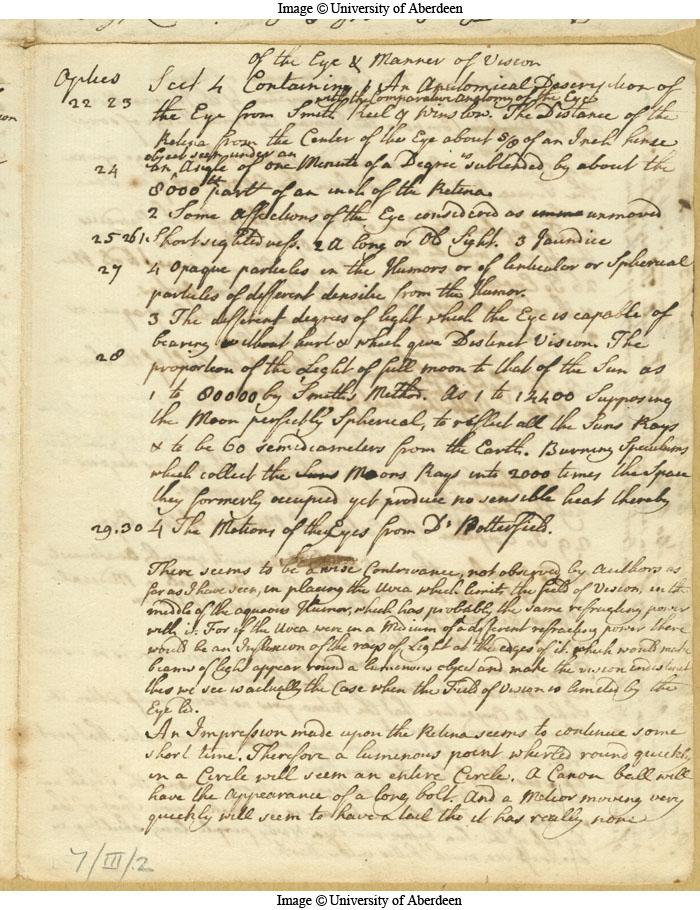 Image © University of Aberdeen
of the Eye & Manner of Vision
Optics Sect 4 Containing 1 An Anatomical Description of
with the Comparative Anatomy of the Eye
22 23 the Eye from Smith Keil & Winslow. The Distance of the
Retina from the Center of the Eye about 5/8 of an Inch hence
objects seen under an
24 an Angle of one Minute of a Degree subtended by about the
8000th part of an inch of the Retina
2 Some Affections of the Eye considered as unmoved
25 26 1. Shortsightedness. 2 A long or Old Sight. 3 Jaundice
27 4 Opaque particles in the Humors or of lenticular or Spherical
particles of different densitie from the Humor.
3 The different degrees of light which the Eye is capable of
bearing without hurt & which give Distinct Vision. The
28 proportion of the Light of full moon to that of the Sun as
1 to 80000 by Smiths Method. As 1 to 14400 Supposing
the Moon perfectly Spherical, to reflect all the Suns Rays
& to be 60 semidiameters from the Earth. Burning Speculums
which collect the Suns Moons Rays into 2000 times the Space
they formerly occupied yet produce no sensible heat thereby
29.30 4 The Motions of the Eyes from Dr Potterfield.
There seems to be a wise Contrivance, not observed by Authors as
far as I have seen, in placing the Uvea which limits the field of Vision, in the
middle of the aqueous Humor, which has probably the same refracting power
with it. For if the Uvea were in a Medium of a different refracting power there
would be an Inflexion of the rays of Light at the edges of it which would make
beams of light appear round a luminous object and make the vision indistinct
this we see is actually the Case when the Field of Vision is limited by the
Eye lid.
An Impression made upon the Retina seems to continue some
short time. Therefore a luminous point whirled round quickly
in a Circle will seem an entire Circle. A Canon ball will
have the Appearance of a long bolt. And a Meteor moving very
quickly will seem to have a tail tho it has really none
7/III/2
Image © University of Aberdeen